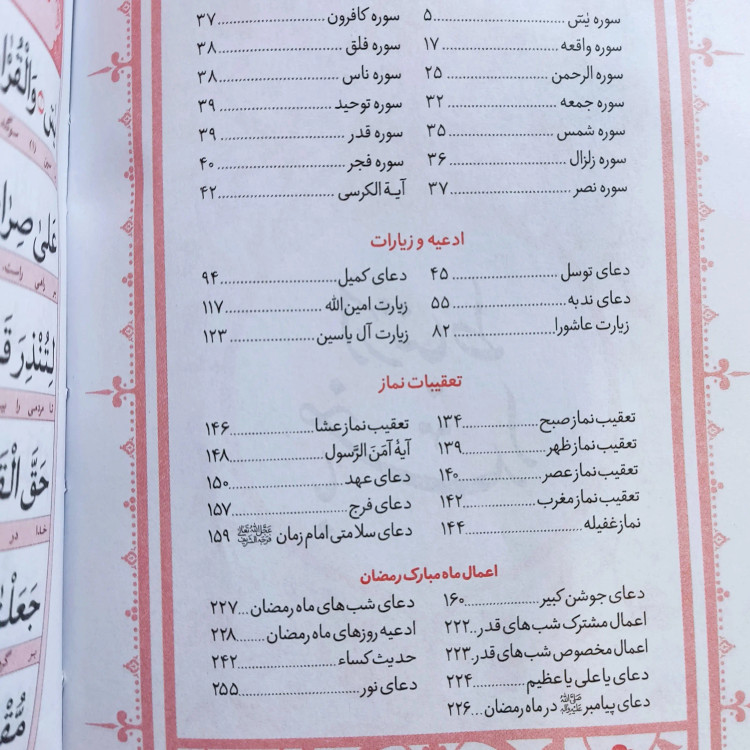 سوره یٰسٓ ........ ۵
سوره واقعه ........ ۱۷
سوره الرحمن ........ ۲۵
سوره جمعه ........ ۳۲
سوره شمس ........ ۳۵
سوره زلزال ........ ۳۶
سوره نصر ........ ۳۷
سوره کافرون ........ ۳۷
سوره فلق ........ ۳۸
سوره ناس ........ ۳۸
سوره توحید ........ ۳۹
سوره قدر ........ ۳۹
سوره فجر ........ ۴۰
آیة الکرسی ........ ۴۲
ادعیه و زیارات
دعای توسل ........ ۴۵
دعای ندبه ........ ۵۵
زیارت عاشورا ........ ۸۲
دعای کمیل ........ ۹۴
زیارت امین‌الله ........ ۱۱۷
زیارت آل یاسین ........ ۱۲۳
تعقیبات نماز
تعقیب نماز صبح ........ ۱۳۴
تعقیب نماز ظهر ........ ۱۳۹
تعقیب نماز عصر ........ ۱۴۰
تعقیب نماز مغرب ........ ۱۴۲
نماز غفیله ........ ۱۴۴
تعقیب نماز عشا ........ ۱۴۶
آیهٔ آمَنَ الرَّسول ........ ۱۴۸
دعای عهد ........ ۱۵۰
دعای فرج ........ ۱۵۷
دعای سلامتی امام زمان ۱۵۹
اعمال ماه مبارک رمضان
دعای جوشن کبیر ........ ۱۶۰
اعمال مشترک شب‌های قدر .. ۲۲۲
اعمال مخصوص شب‌های قدر . ۲۲۳
دعای یا علی یا عظیم ........ ۲۲۴
دعای پیامبر ﷺ در ماه رمضان ... ۲۲۶
دعای شب‌های ماه رمضان ... ۲۲۷
ادعیه روزهای ماه رمضان ........ ۲۲۸
حدیث کساء ........ ۲۴۲
دعای نور ........ ۲۵۵